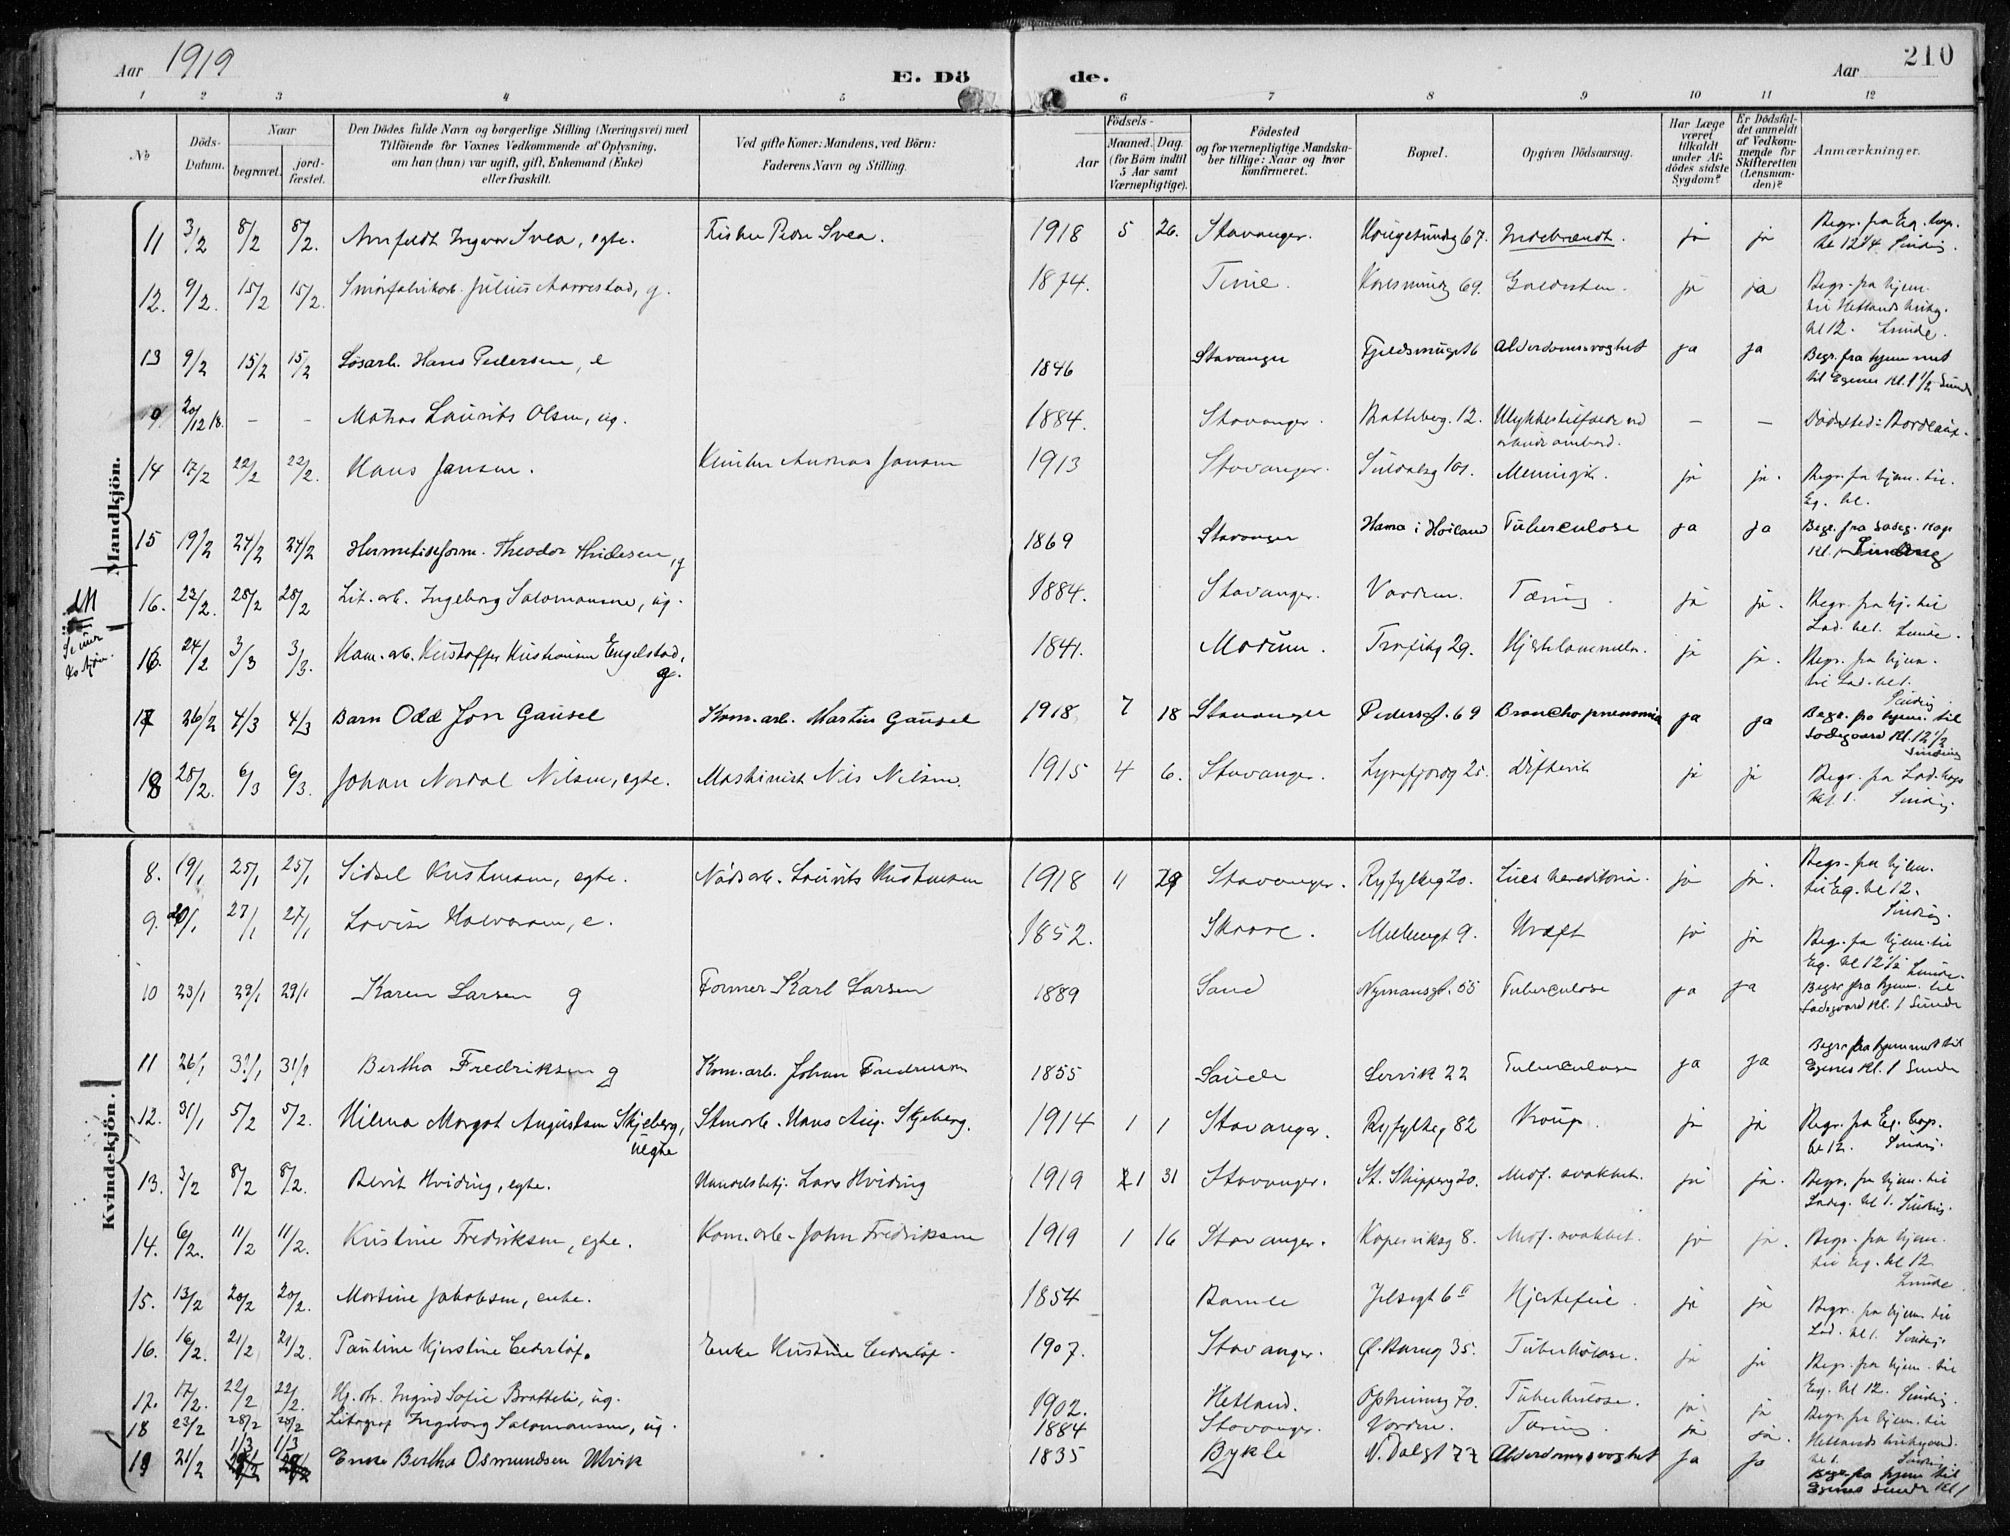 Aar 1919
E. Döde.
Aar
210
1 2 3 4 5 6 7 8 9 10 11 12
No
Döds-Datum.
Naar
begravet.
jord-fæstet.
Den Dödes fulde Navn og borgerlige Stilling (Næringsvei) med
Tilföiende for Voxnes Vedkommende af Oplysning,
om han (hun) var ugift, gift, Enkemand (Enke)
eller fraskilt.
Ved gifte Koner: Mandens, ved Börn:
Faderens Navn og Stilling.
Födsels-
Aar
Maaned. Dag.
(for Börn indtil
5 Aar samt
Værnepligtige).
Födested
og for værnepligtige Mandska-
ber tillige: Naar og hvor
konfirmeret.
Bopæl.
Opgiven Dödsaarsag.
Har Læge
været
tilkaldt
under Af-
dödes sidste
Sygdom?
Er Dödsfal-
det anmeldt
af Vedkom-
mende for
Skifteretten
(Lensman-
den)?
Anmærkninger.
Mandkjön.
11 3/2 8/2 8/2. Arnfeldt Ingvar Svea, egte. Fisker Peder Svea. 1918 5 26. Stavanger. Haugesundg 67. ja ja Begr. fra Eg. kap. kl 12 1/4. Sinding.
12. 9/2. 15/2 15/2. Julius Aarrestad, g. 1874. Time. 69. Galdesten. ja ja Begr. fra hjem. til Hetlands kirkg. kl 12. Lunde.
13 9/2 15/2 15/2 Løsarb. Hans Pedersen, e 1846 Stavanger Alderdomssvaghet ja ja Begr. fra hjemmet til Egenes Kl. 1 1/2 Lunde
9 20/12 18. – – Laurits Olsen, ug. 1884. Stavanger. Bratteberg. 12. Ulykkestilfælde ved arbeide ombord. – – Dødssted: Bordeaux.
14 17/2 22/2 22/2. Hans Jansen. Jansen 1913 Stavanger. Suldalsg 101. Meningit. ja ja. Begr. fra hjem. til Eg. kl.
15 19/2 24/2 24/2 Theodor, g 1869 Stavanger Hana i Høiland Tuberculose ja ja Begr. fra Ladeg. kap Kl. 1 Sinding
16. 23/2. 28/2 28/2 Lit. arb. Ingeborg Salomonsen, ug. 1884. Stavanger. Varden. Tæring. ja ja. Begr. fra hj. til Lad. kl 1. Lunde.
16. 24/2 3/3 3/3. Kom. arb. Kristoffer Kristiansen Engelstad, g. 1841. Modum. 29. Hjertelammelse. ja ja. Begr. fra hjem. til Lad. kl 1. Sinding
17 26/2 4/3 4/3 Barn Odd Jon Gausel Kom. arb. Martin Gausel 1918 7 18 Stavanger Pedersgt. 69 Bronchopneumonia ja ja Begr. fra hjem. til Ladegaard Kl. 12 1/2 Sinding
18 28/2. 6/3 6/3. Johan Nordal Nilsen, egte. Maskinist Nils Nilsen. 1915 4 6. Stavanger. Lysefjordg 25. Difterit ja ja Begr. fra Lad. kap Kl. 1. Sinding.
Kvindekjön.
8. 19/1 25/1 25/1 Sidsel Kristensen, egte. Laurits Kristensen 1918 11 29 Stavanger. Ryfylkeg 20. Lues hereditaria. ja ja. Begr. fra hjem. til Eg. kl 12. Sinding.
9. 20/1 27/1 27/1 Lovise Halvorsen, e. 1852. Skaare. Møllergt 9. Kræft ja ja Begr. fra hjem. til Eg. kl 12 1/2 Lunde.
10 23/1 29/1 29/1 Karen Larsen g Former Karl Larsen 1889 Sand Nymansgt. 55 Tuberculose ja ja Begr fra hjem. til Ladegaard Kl. 1 Lunde
11 26/1 31/1 31/1 Bertha Fredriksen g Kom. arb. Johan Fredriksen 1855 Saude Lervik 22 Tuberculose ja ja Begr fra hjemmet til Egenes Kl. 1 Lunde
12. 31/1 5/2 5/2. Hilma Margot Augustsen Skjeberg, uegte Hans Aug. Skjeberg. 1914 1 1 Stavanger. Ryfylkeg 82 Kroup. ja ja Begr. fra Eg. kap. kl 12. Sinding.
13. 3/2 8/2 8/2. Berit Hviding, egte. Handelsbetj. Lars Hviding 1919 1 31 Stavanger. St. Skipperg 20. Medf. svakhet. ja ja. Begr. fra hjem. til Ladeg. kl 1. Sinding.
14. 6/2. 11/2 11/2. Kristine Fredriksen, egte. Kom. arb. John Fredriksen 1919 1 16 Stavanger. Kopervikg 8. Medf. svakhet. ja ja. Begr. fra hjem. til Eg. kl 12 Lunde
15. 13/2 20/2 20/2. Martine Jakobsen, enke. 1854 Bamle Jelsagt 6 II Hjertefeil. ja ja Begr. fra hjem. til Lad. kl 1. Sinding.
16. 16/2. 21/2 21/2. Pauline Kjerstine Cederløf. Enke Kristine Cederløf. 1907. Stavanger. 35. Tuberkulose. ja ja Begr. fra hjem. til Eg. kl 12. Sinding.
17. 17/2. 22/2 22/2. Ingrid Sofie Bratteli, ug. 1902. Hetland. 70. Tuberkulose. ja ja Begr. fra hjem. til Hetlands kirkegaard. kl 1. Sinding
18 23/2 28/2 28/2 Litograf Ingeborg Salomonsen, ug. 1884 Stavanger. Varden. Tæring. ja ja.
19 21/2 1/3 1/3 Enke Bertha Osmundsen Ulvik 1835 Bykle V. Dalsgt 77 Alderdomssvaghet ja ja Begr. fra hjem til Egenes Lunde Kl 1